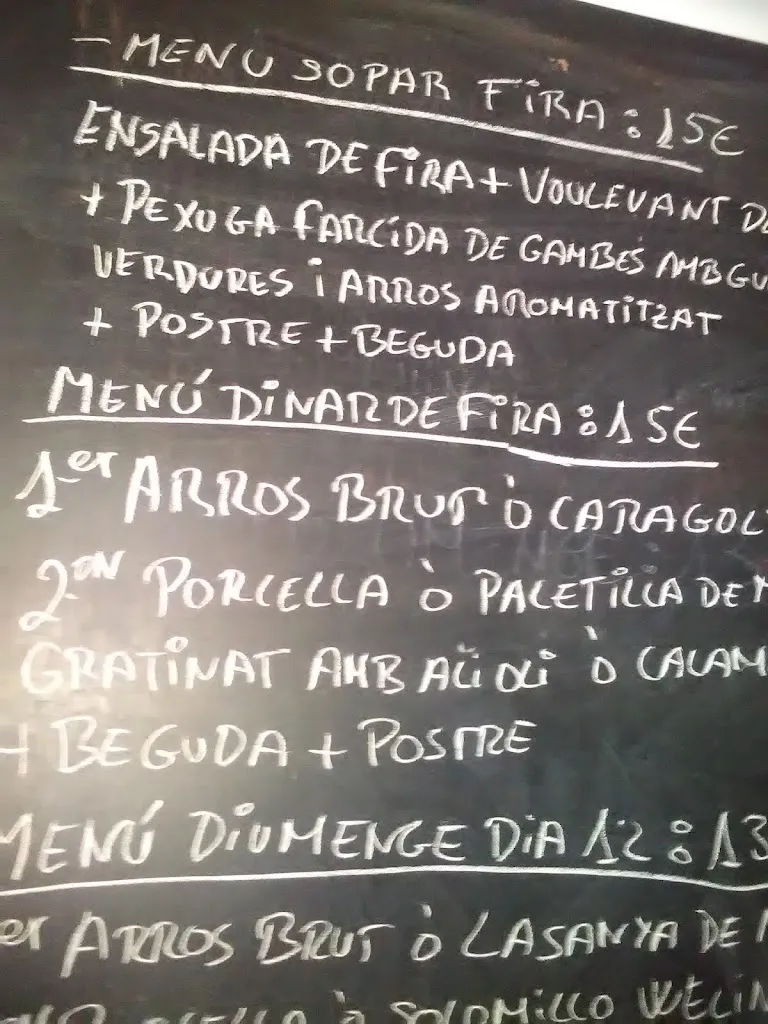 - MENU SOPAR FIRA : 15€
ENSALADA DE FIRA + VOULEVANT
+ PEXUGA FARCIDA DE GAMBES AMB
VERDURES I ARROS AROMATITZAT
+ POSTRE + BEGUDA
MENÚ DINAR DE FIRA : 15€
1er ARROS BRUT Ò CARAGOL
2on PORCELLA Ò PALETILLA DE
GRATINAT AMB ALIOLI Ò CALAM
+ BEGUDA + POSTRE
MENÚ DIUMENGE DIA 12 : 13
er ARROS BRUT Ò LASANYA DE
Ò SOLOMILLO WELIN